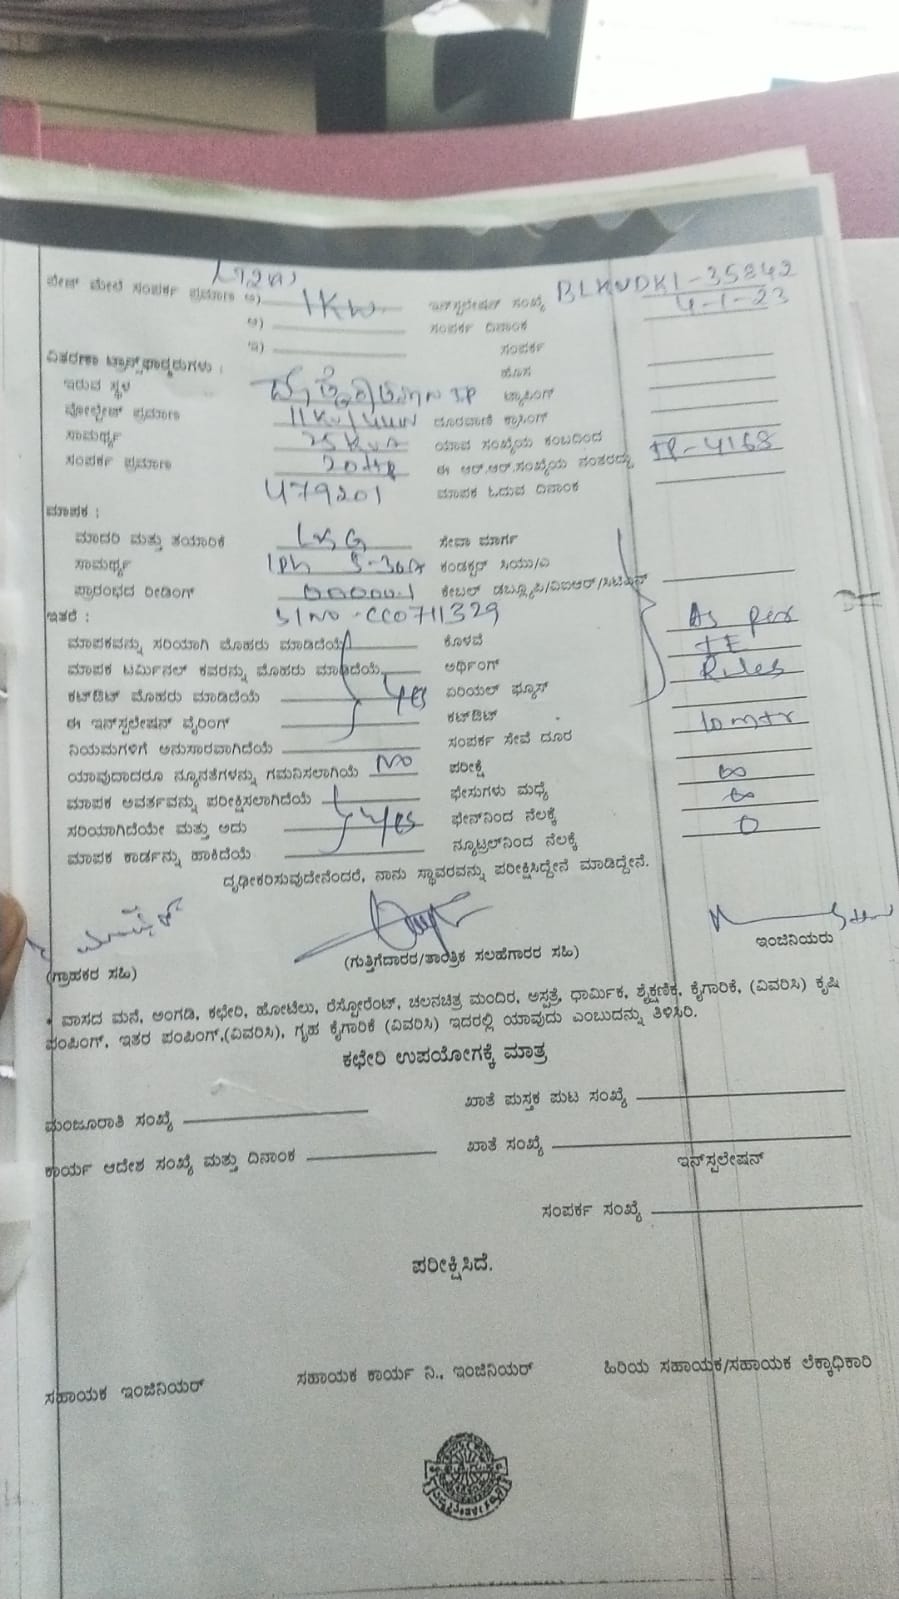 ಮೇಲೆ ಸಂಪರ್ಕ ಪ್ರಮಾಣ ಅ) 1KW ಇನ್‌ಸ್ಟಲೇಷನ್ ಸಂಖ್ಯೆ BLKVDKI-35842
ಆ) ಸಂಪರ್ಕ ದಿನಾಂಕ 4-1-23
ಇ) ಸಂಪರ್ಕ
ವಿತರಣಾ ಟ್ರಾನ್ಸ್‌ಫಾರ್ಮರುಗಳು : ಹೊಸ
ಇರುವ ಸ್ಥಳ IP ಟ್ಯಾಪಿಂಗ್
ವೋಲ್ಟೇಜ್ ಪ್ರಮಾಣ ದೂರವಾಣಿ ಕ್ರಾಸಿಂಗ್
ಸಾಮರ್ಥ್ಯ 25 KVA ಯಾವ ಸಂಖ್ಯೆಯ ಕಂಬದಿಂದ
ಸಂಪರ್ಕ ಪ್ರಮಾಣ 20HP ಈ ಆರ್.ಆರ್.ಸಂಖ್ಯೆಯ ನಂತರದ್ದು IP-4168
479201 ಮಾಪಕ ಓದುವ ದಿನಾಂಕ
ಮಾಪಕ :
ಮಾದರಿ ಮತ್ತು ತಯಾರಿಕೆ L&G ಸೇವಾ ಮಾರ್ಗ
ಸಾಮರ್ಥ್ಯ 1Ph 5-30A ಕಂಡಕ್ಟರ್ ಸಿಯು/ಎ
ಪ್ರಾರಂಭದ ರೀಡಿಂಗ್ 00000.1 ಕೇಬಲ್ ಡಬ್ಲ್ಯೂಪಿ/ವಿಐಆರ್/ಸಿಟಿಎಸ್
ಇತರೆ : Sl No-CC0711329
ಮಾಪಕವನ್ನು ಸರಿಯಾಗಿ ಮೊಹರು ಮಾಡಿದೆಯೆ ಕೊಳವೆ As per
ಮಾಪಕ ಟರ್ಮಿನಲ್ ಕವರನ್ನು ಮೊಹರು ಮಾಡಿದೆಯೆ ಅರ್ಥಿಂಗ್ IE
ಕಟ್‌ಔಟ್ ಮೊಹರು ಮಾಡಿದೆಯೆ Yes ಏರಿಯಲ್ ಫ್ಯೂಸ್ Rules
ಈ ಇನ್‌ಸ್ಟಲೇಷನ್ ವೈರಿಂಗ್ ಕಟ್‌ಔಟ್
ನಿಯಮಗಳಿಗೆ ಅನುಸಾರವಾಗಿದೆಯೆ ಸಂಪರ್ಕ ಸೇವೆ ದೂರ 10 mtr
ಯಾವುದಾದರೂ ನ್ಯೂನತೆಗಳನ್ನು ಗಮನಿಸಲಾಗಿಯೆ No ಪರೀಕ್ಷೆ
ಮಾಪಕ ಆವರ್ತವನ್ನು ಪರೀಕ್ಷಿಸಲಾಗಿದೆಯೆ ಫೇಸುಗಳು ಮಧ್ಯೆ ∞
ಸರಿಯಾಗಿದೆಯೇ ಮತ್ತು ಅದು Yes ಫೇಸ್‌ನಿಂದ ನೆಲಕ್ಕೆ ∞
ಮಾಪಕ ಕಾರ್ಡನ್ನು ಹಾಕಿದೆಯೆ ನ್ಯೂಟ್ರಲ್‌ನಿಂದ ನೆಲಕ್ಕೆ 0
ದೃಢೀಕರಿಸುವುದೇನೆಂದರೆ, ನಾನು ಸ್ಥಾವರವನ್ನು ಪರೀಕ್ಷಿಸಿದ್ದೇನೆ ಮಾಡಿದ್ದೇನೆ.
(ಗ್ರಾಹಕರ ಸಹಿ) (ಗುತ್ತಿಗೆದಾರರ/ತಾಂತ್ರಿಕ ಸಲಹೆಗಾರರ ಸಹಿ) ಇಂಜಿನಿಯರು
• ವಾಸದ ಮನೆ, ಅಂಗಡಿ, ಕಛೇರಿ, ಹೋಟೆಲು, ರೆಸ್ಟೋರೆಂಟ್, ಚಲನಚಿತ್ರ ಮಂದಿರ, ಅಸ್ಪತ್ರೆ, ಧಾರ್ಮಿಕ, ಶೈಕ್ಷಣಿಕ, ಕೈಗಾರಿಕೆ, (ವಿವರಿಸಿ) ಕೃಷಿ
ಪಂಪಿಂಗ್, ಇತರ ಪಂಪಿಂಗ್,(ವಿವರಿಸಿ), ಗೃಹ ಕೈಗಾರಿಕೆ (ವಿವರಿಸಿ) ಇದರಲ್ಲಿ ಯಾವುದು ಎಂಬುದನ್ನು ತಿಳಿಸಿರಿ.
ಕಛೇರಿ ಉಪಯೋಗಕ್ಕೆ ಮಾತ್ರ
ಮಂಜೂರಾತಿ ಸಂಖ್ಯೆ ಖಾತೆ ಪುಸ್ತಕ ಪುಟ ಸಂಖ್ಯೆ
ಕಾರ್ಯ ಆದೇಶ ಸಂಖ್ಯೆ ಮತ್ತು ದಿನಾಂಕ ಖಾತೆ ಸಂಖ್ಯೆ
ಇನ್‌ಸ್ಟಲೇಷನ್
ಸಂಪರ್ಕ ಸಂಖ್ಯೆ
ಪರೀಕ್ಷಿಸಿದೆ.
ಸಹಾಯಕ ಇಂಜಿನಿಯರ್ ಸಹಾಯಕ ಕಾರ್ಯ ನಿ., ಇಂಜಿನಿಯರ್ ಹಿರಿಯ ಸಹಾಯಕ/ಸಹಾಯಕ ಲೆಕ್ಕಾಧಿಕಾರಿ